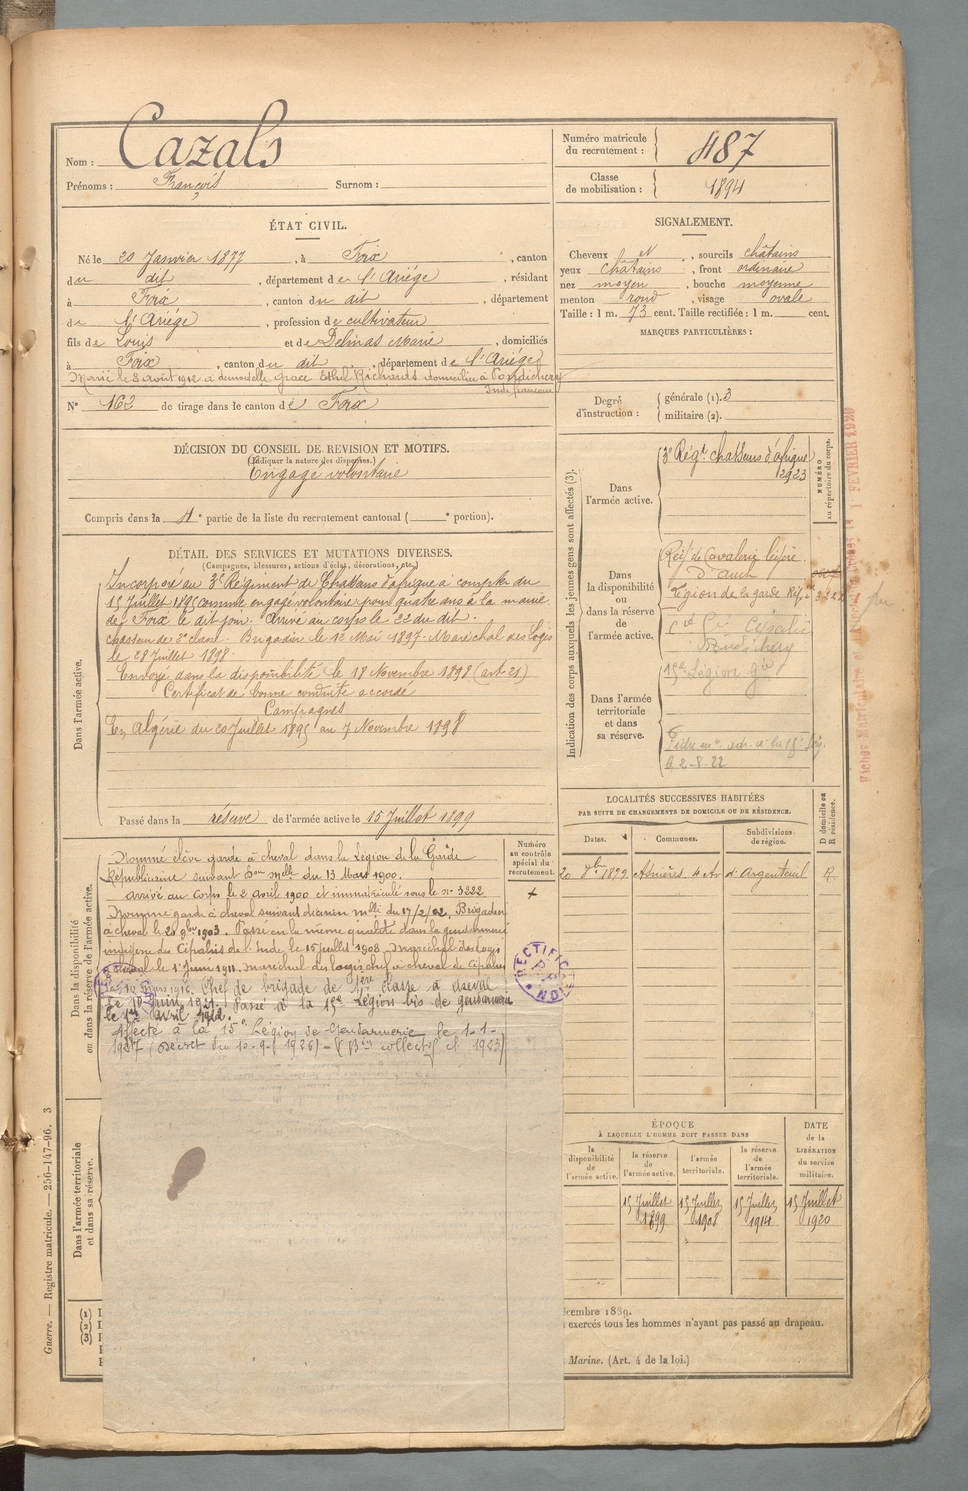 Nom : Cazals
Prénoms : François Surnom :
Numéro matricule du recrutement : 487
Classe de mobilisation : 1894
ÉTAT CIVIL.
Né le 20 Janvier 1877, à Foix, canton
du dit, département de l'Ariége, résidant
à Foix, canton du dit, département
de l'Ariége, profession de cultivateur
fils de Louis et de Delmas Marie, domiciliés
à Foix, canton du dit, département de l'Ariége
Marié le 8 août 1912 à demoiselle Grace Ethel Richards domiciliée à Pondichery
Inde française
N° 162 de tirage dans le canton de Foix
SIGNALEMENT.
Cheveux et, sourcils châtains
yeux châtains, front ordinaire
nez moyen, bouche moyenne
menton rond, visage ovale
Taille : 1 m. 73 cent. Taille rectifiée : 1 m. cent.
MARQUES PARTICULIÈRES :
Degré d'instruction : générale (1). 3
militaire (2).
DÉCISION DU CONSEIL DE REVISION ET MOTIFS.
(Indiquer la nature des dispenses.)
Engagé volontaire
Compris dans la 4e partie de la liste du recrutement cantonal ( e portion).
DÉTAIL DES SERVICES ET MUTATIONS DIVERSES.
(Campagnes, blessures, actions d'éclat, décorations, etc.)
Dans l'armée active.
Incorporé au 3e Régiment de Chasseurs d'afrique à compter du
15 Juillet 1895 comme engagé volontaire pour quatre ans à la mairie
de Foix le dit jour. Arrivé au corps le 22 du dit.
Chasseur de 2e classe. Brigadier le 12 Mai 1897. Maréchal des Logis
le 28 Juillet 1898.
Envoyé dans la disponibilité le 18 Novembre 1898 (art. 21)
Certificat de bonne conduite accordé
Campagnes
En Algérie du 20 Juillet 1895 au 7 Novembre 1898
Passé dans la réserve de l'armée active le 15 Juillet 1899
Indication des corps auxquels les jeunes gens sont affectés (3).
NUMÉRO au répertoire du corps.
Dans l'armée active.
3e Régt chasseurs d'afrique
2923
Dans la disponibilité ou dans la réserve de l'armée active.
Légion de la garde Rép.
Cipahis
Pondichéry
Dans l'armée territoriale et dans sa réserve.
15e Légion Gie
2-8-22
1 FÉVRIER 1920
Dans la disponibilité ou dans la réserve de l'armée active.
Nommé élève garde à cheval dans la Légion de la Garde
Républicaine suivant Don Mlle du 13 Mars 1900.
arrivé au Corps le 2 avril 1900 et immatriculé sous le n° 3222
Nommé garde à cheval suivant décision mlle du 17/2/02. Brigadier
à cheval le 20 9bre 1903. Passé en la même qualité dans la gendarmerie
indigène du Cipahis de l'Inde le 15 juillet 1908. Maréchal des Logis
à cheval le 1er Juin 1911. Maréchal des logis chef à cheval de Cipahis
Chef de brigade de 1ère classe à cheval
le 10 Juin 1921. Passé à la 15e Légion bis de gendarmerie
le 1er avril 1922.
Affecté à la 15e Légion de Gendarmerie le 1-1-
1927
Numéro au contrôle spécial du recrutement.
RECTIFICATION
R. F.
LOCALITÉS SUCCESSIVES HABITÉES
PAR SUITE DE CHANGEMENTS DE DOMICILE OU DE RÉSIDENCE.
Dates. Communes. Subdivisions de région. D domicile ou R résidence.
20 8bre 1899 Asnières d'Argenteuil R.
Dans l'armée territoriale et dans sa réserve.
ÉPOQUE
À LAQUELLE L'HOMME DOIT PASSER DANS
la disponibilité de l'armée active.
la réserve de l'armée active.
l'armée territoriale.
la réserve de l'armée territoriale.
DATE de la LIBÉRATION du service militaire.
15 Juillet 1899
15 Juillet 1908
15 Juillet 1914
15 Juillet 1920
(1)
(2)
(3)
écembre 1889.
exercés tous les hommes n'ayant pas passé au drapeau.
Marine. (Art. 4 de la loi.)
Guerre. — Registre matricule. — 256-147-96. 3